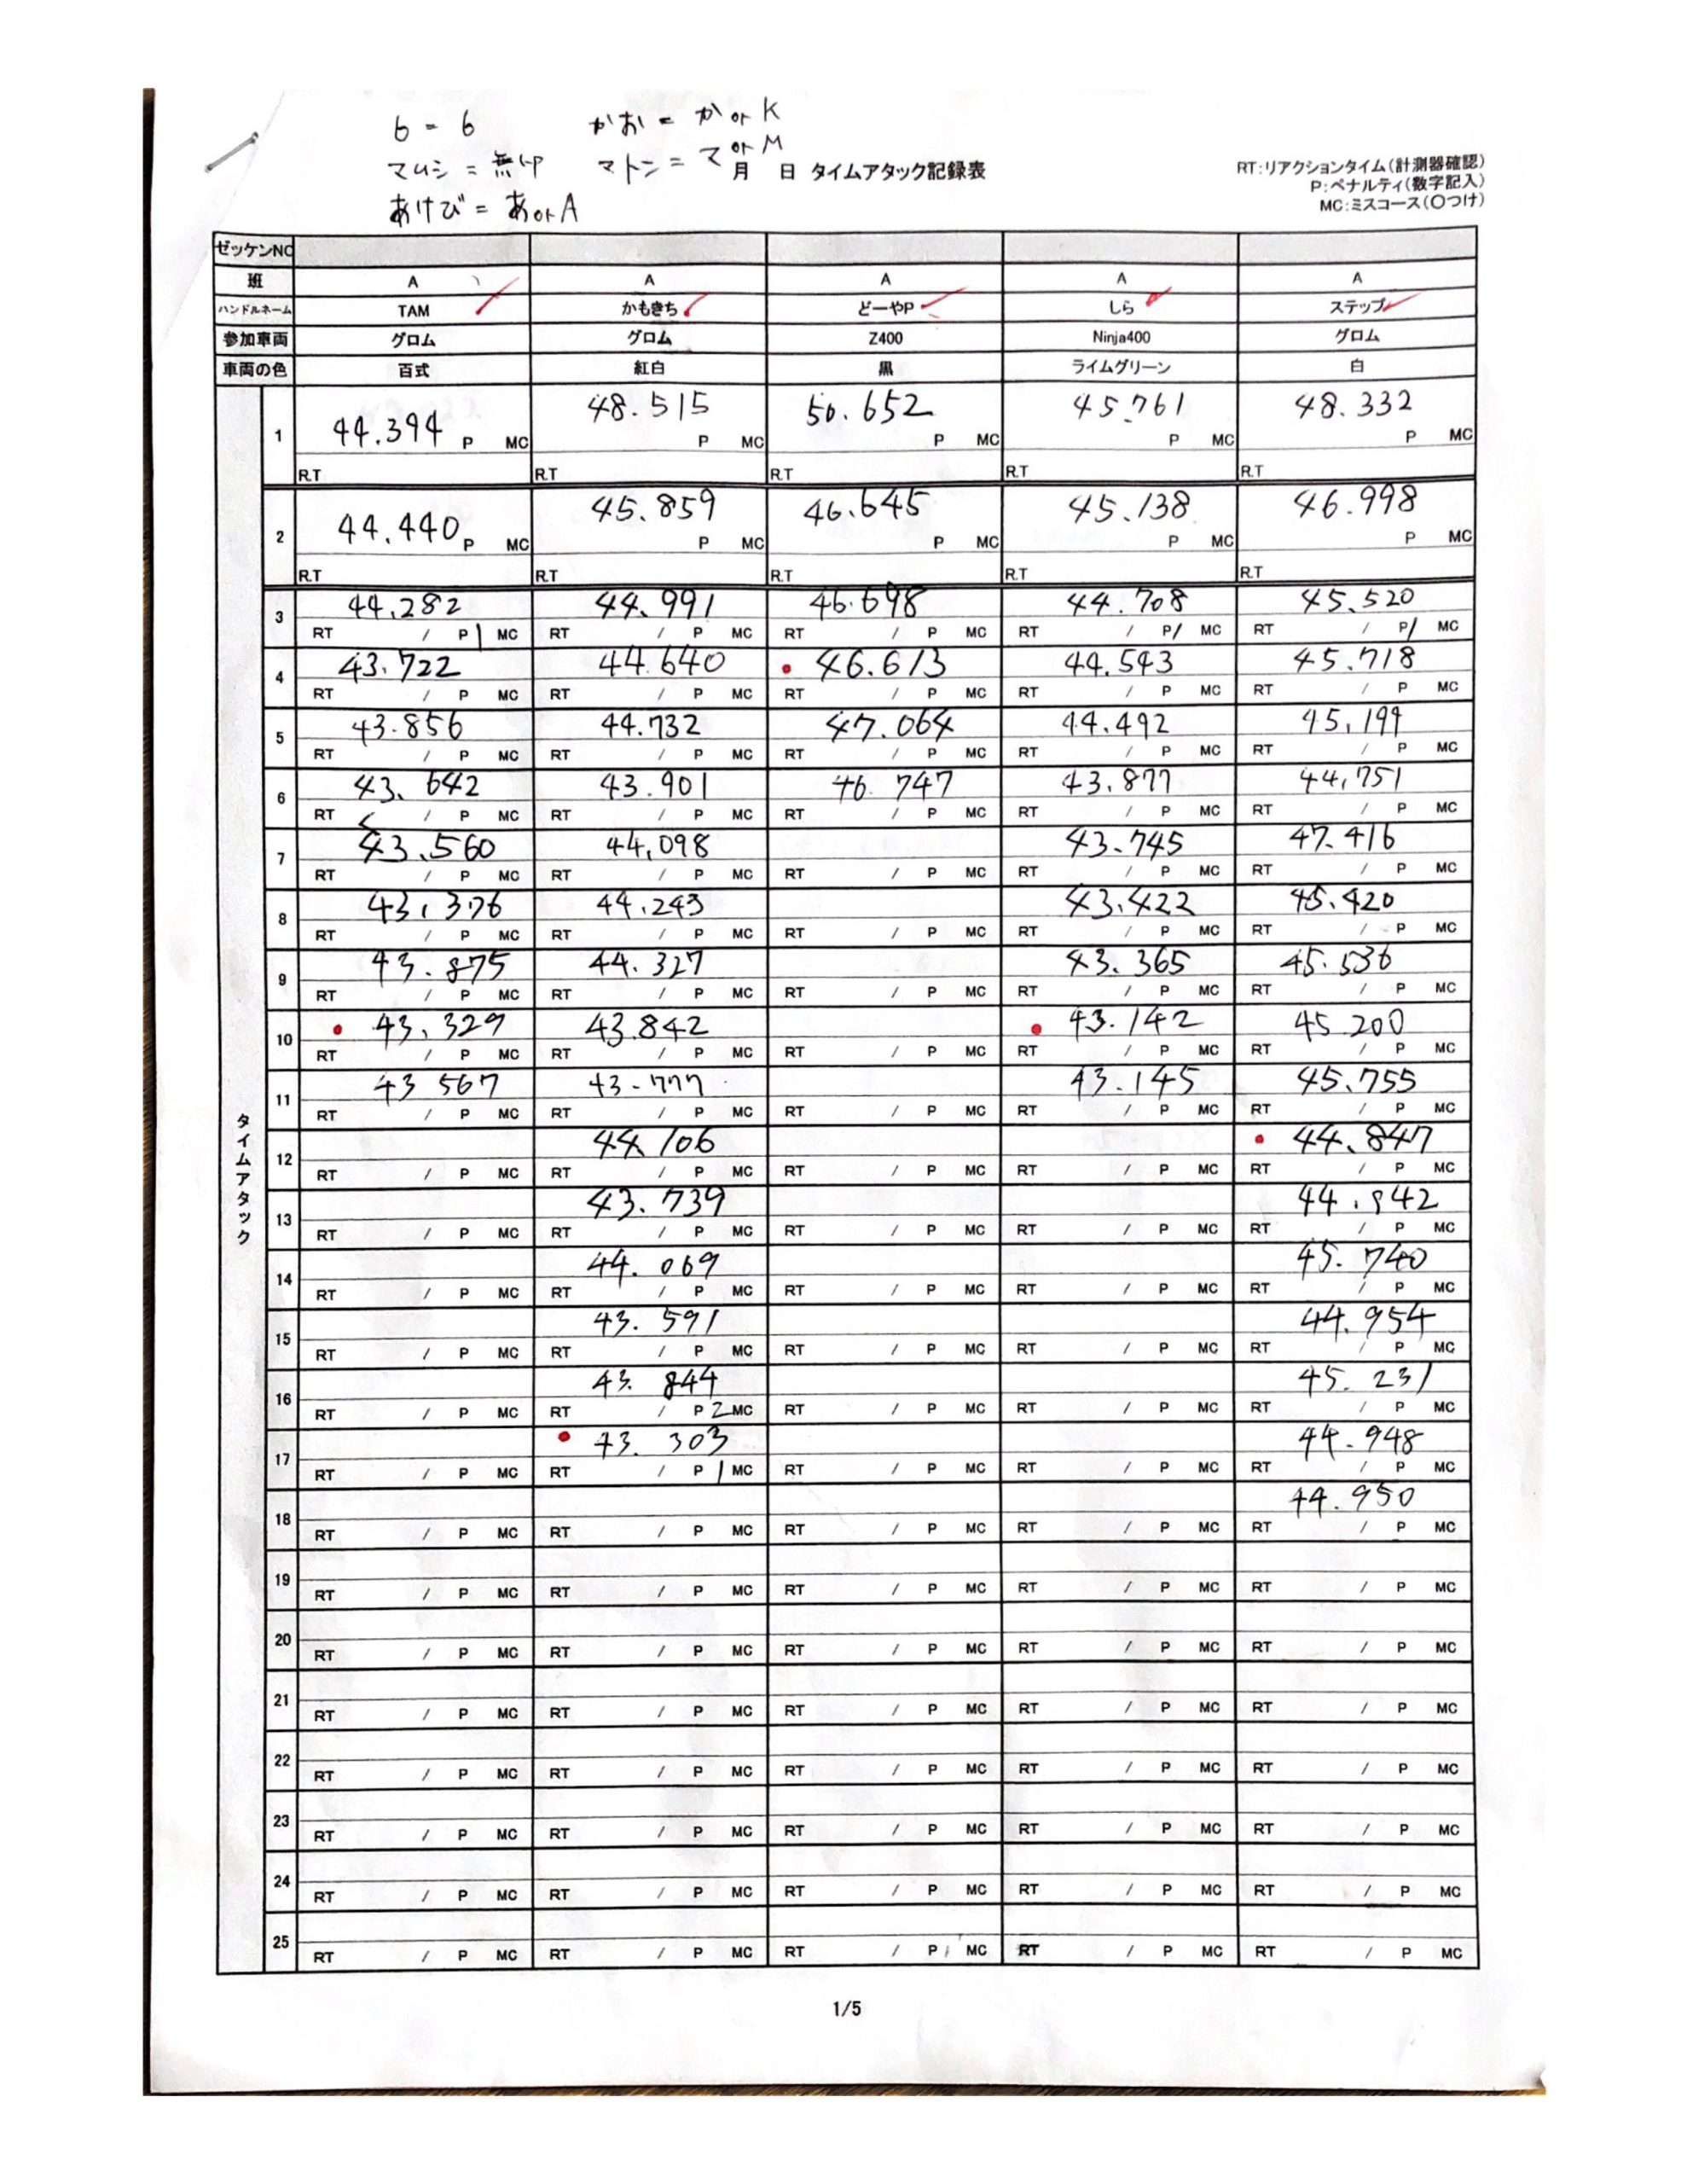 6 = 6 かお = か or K
マムシ = 無印 マトン = マ or M
月 日 タイムアタック記録表
あけび = あ or A
RT:リアクションタイム(計測器確認)
P:ペナルティ(数字記入)
MC:ミスコース(〇つけ)
ゼッケンNO
班 A A A A A
ハンドルネーム TAM かもきち どーやP しら ステップ
参加車両 グロム グロム Z400 Ninja400 グロム
車両の色 百式 紅白 黒 ライムグリーン 白
タイムアタック
1 44.394 48.515 50.652 45.761 48.332
P MC P MC P MC P MC P MC
R.T R.T R.T R.T R.T
2 44.440 45.859 46.645 45.138 46.998
P MC P MC P MC P MC P MC
R.T R.T R.T R.T R.T
3 44.282 44.991 46.698 44.708 45.520
RT / P 1 MC RT / P MC RT / P MC RT / P / MC RT / P / MC
4 43.722 44.640 46.613 44.543 45.718
RT / P MC RT / P MC RT / P MC RT / P MC RT / P MC
5 43.856 44.732 47.064 44.492 45.199
RT / P MC RT / P MC RT / P MC RT / P MC RT / P MC
6 43.642 43.901 46.747 43.877 44.751
RT / P MC RT / P MC RT / P MC RT / P MC RT / P MC
7 43.560 44.098 43.745 47.416
RT / P MC RT / P MC RT / P MC RT / P MC RT / P MC
8 43.376 44.243 43.422 45.420
RT / P MC RT / P MC RT / P MC RT / P MC RT / P MC
9 43.875 44.327 43.365 45.536
RT / P MC RT / P MC RT / P MC RT / P MC RT / P MC
10 43.329 43.842 43.142 45.200
RT / P MC RT / P MC RT / P MC RT / P MC RT / P MC
11 43 567 43.777 43.145 45.755
RT / P MC RT / P MC RT / P MC RT / P MC RT / P MC
12 44.106 44.847
RT / P MC RT / P MC RT / P MC RT / P MC RT / P MC
13 43.739 44.842
RT / P MC RT / P MC RT / P MC RT / P MC RT / P MC
14 44.069 45.740
RT / P MC RT / P MC RT / P MC RT / P MC RT / P MC
15 43.591 44.954
RT / P MC RT / P MC RT / P MC RT / P MC RT / P MC
16 43.844 45.231
RT / P MC RT / P 2 MC RT / P MC RT / P MC RT / P MC
17 43.303 44.948
RT / P MC RT / P 1 MC RT / P MC RT / P MC RT / P MC
18 44.950
RT / P MC RT / P MC RT / P MC RT / P MC RT / P MC
19
RT / P MC RT / P MC RT / P MC RT / P MC RT / P MC
20
RT / P MC RT / P MC RT / P MC RT / P MC RT / P MC
21
RT / P MC RT / P MC RT / P MC RT / P MC RT / P MC
22
RT / P MC RT / P MC RT / P MC RT / P MC RT / P MC
23
RT / P MC RT / P MC RT / P MC RT / P MC RT / P MC
24
RT / P MC RT / P MC RT / P MC RT / P MC RT / P MC
25
RT / P MC RT / P MC RT / P MC RT / P MC RT / P MC
1/5